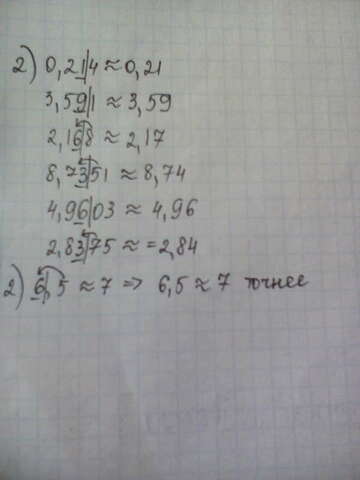 2) 0,21|4 ≈ 0,21
3,59|1 ≈ 3,59
2,16|8 ≈ 2,17
8,73|51 ≈ 8,74
4,96|03 ≈ 4,96
2,83|75 ≈ = 2,84
2) 6,|5 ≈ 7 => 6,5 ≈ 7 точнее